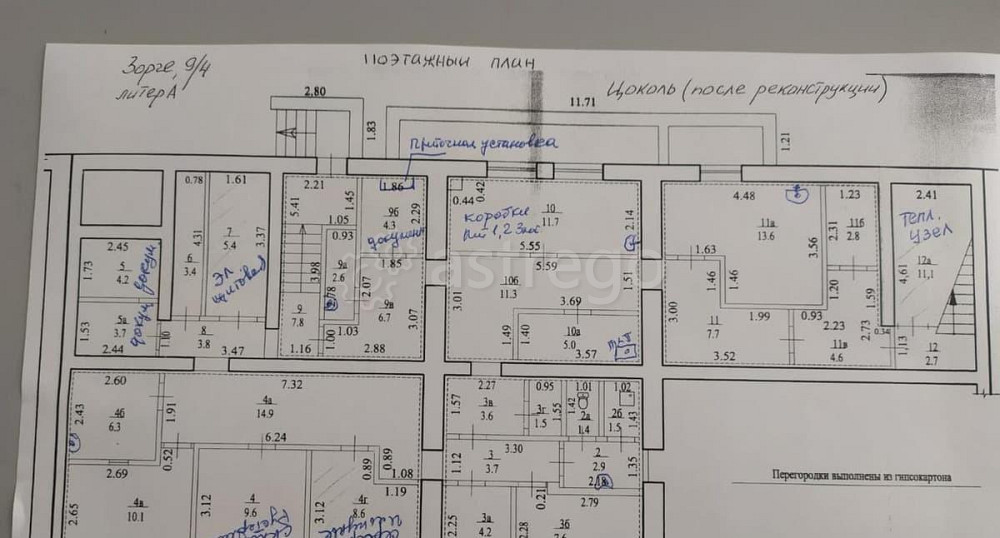 Зорге, 9/4
литер А
Поэтажный план
Цоколь (после реконструкции)
2.80
11.71
1.83
1.21
Приточная установка
0.78
1.61
2.21
1.45
1.86
0.44
0.42
10
11.7
2.14
4.48
1.23
2.41
5.41
1.05
9б
4.3
2.29
коробки
11а
13.6
2.31
11б
2.8
тепл.
узел
2.45
4.31
7
5.4
3.37
0.93
докумен
5.55
3.56
1.73
5
4.2
6
3.4
эл
щитовая
3.98
9а
2.6
1.85
5.59
1.63
12а
11,1
4.61
докум
2.78
2.07
10б
11.3
1.51
1.46
1.46
1.20
1.59
1.53
5а
3.7
докум
1.10
8
3.8
9
7.8
9в
6.7
3.07
3.01
3.69
3.00
1.99
0.93
2.23
2.44
3.47
1.16
1.00
1.03
2.88
1.49
1.40
10а
5.0
3.57
11
7.7
3.52
11в
4.6
2.73
0.34
1,13
12
2.7
2.60
7.32
2.27
0.95
1.01
1,02
2.43
4б
6.3
1.91
4а
14.9
1.57
3в
3.6
3г
1.5
1.55
1.42
2а
1.4
2б
1.5
1.43
6.24
3.30
2.69
0.52
0.89
0.89
1.08
1.12
3
3.7
2
2.9
1.35
2.18
1.19
0.21
2.79
Перегородки выполнены из гипсокартона
2.65
4в
10.1
3.12
4
9.6
3.12
4г
8.6
2.25
3а
4.2
2.28
3б
7.6
astrego